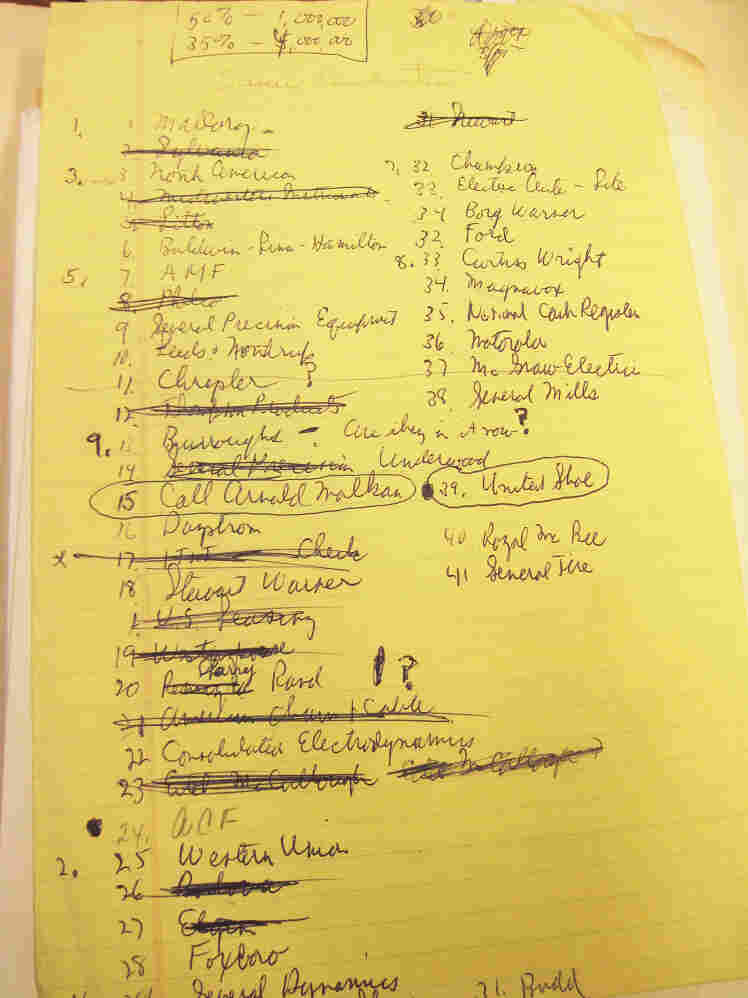 50% - 1,000,000
35% - 4,000,000
1. 1 Mallory -
2 Sylvania
3. 3 North American
4 Midwestern Instruments
5. Litton
6. Baldwin-Lima-Hamilton
5. 7. AMF
8. Philco
9 General Precision Equipment
10. Leeds & Northrup
11. Chrysler ?
12. Thompson Products
9. 13 Burroughs - Are they in A row?
14 General Precision Underwood
15 Call Arnold Malkan
16 Daystrom
x 17. Check
18 Stewart Warner
1. U.S. Leasing
19 Westinghouse
20 Sperry Rand ?
21 American Chain & Cable
22 Consolidated Electrodynamics
23 Eitel McCullough
24. ACF
2. 25 Western Union
26
27 Elgin
28 Foxboro
General Dynamics
31 Stewart
7. 32 Champion
33. Electric Auto-Lite
34 Borg Warner
32. Ford
8. 33 Curtiss Wright
34. Magnavox
35. National Cash Register
36 Motorola
37 McGraw Electric
38. General Mills
39. United Shoe
40 Royal McBee
41 General Tire
31. Budd